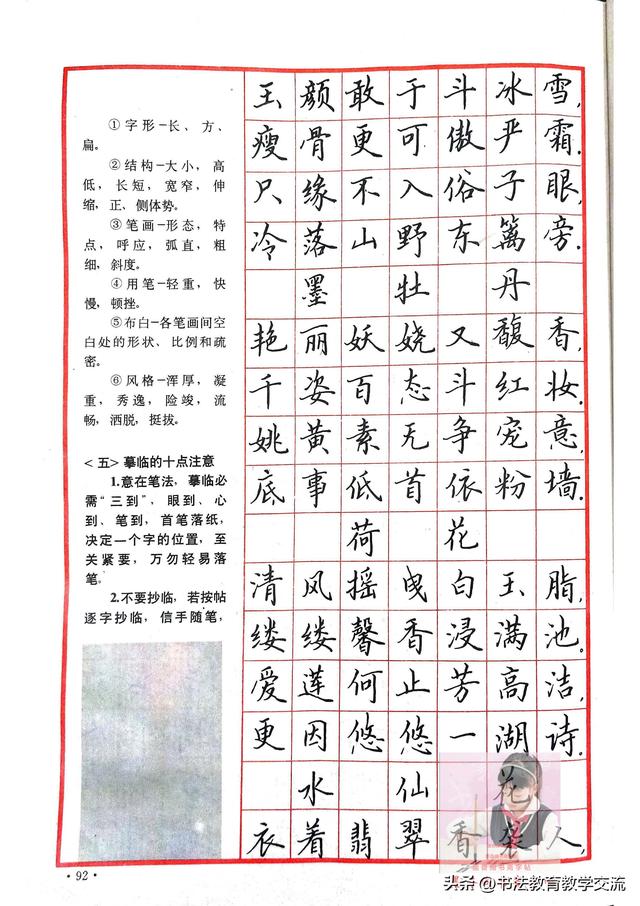 ①字形－长、方、
扁。
②结构－大小，高
低，长短，宽窄，伸
缩，正、侧体势。
③笔画－形态，特
点，呼应，弧直，粗
细，斜度。
④用笔－轻重，快
慢，顿挫。
⑤布白－各笔画间空
白处的形状、比例和疏
密。
⑥风格－浑厚，凝
重，秀逸，险竣，流
畅，洒脱，挺拔。
<五>摹临的十点注意
1.意在笔法，摹临必
需“三到”，眼到、心
到、笔到，首笔落纸，
决定一个字的位置，至
关紧要，万勿轻易落
笔。
2.不要抄临，若按帖
逐字抄临，信手随笔，
玉颜敢于斗冰雪，
瘦骨更可傲严霜。
只缘不入俗子眼，
冷落山野东篱旁。
墨牡丹
艳丽妖娆又馥香，
千姿百态斗红妆。
姚黄素无争宠意，
底事低首依粉墙。
荷花
清风摇曳白玉脂，
缕缕馨香浸满池。
爱莲何止芳高洁，
更因悠悠一湖诗。
水仙花
衣着翡翠香袭人，
·92·
头条@书法教育教学交流